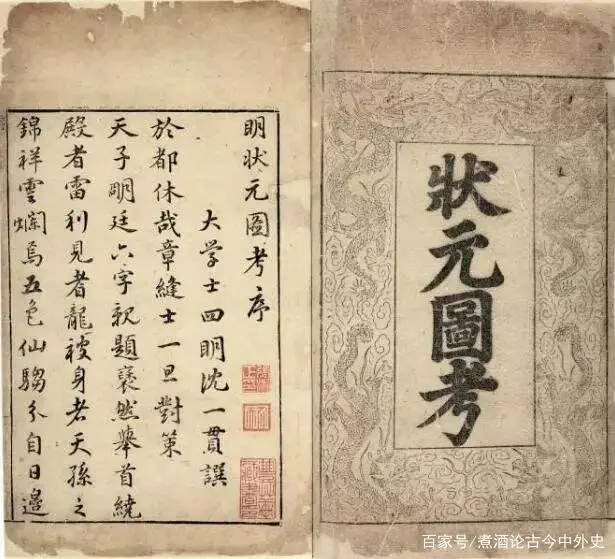 狀元圖考
明狀元圖考序
大学士四明沈一貫譔
於都休哉章縫士一旦對策
天子明廷六字親題褎然舉首繞
殿者雷利見者龍被身者天孫之
錦祥雲爛焉五色仙騶分自日邊
百家号/煮酒论古今中外史